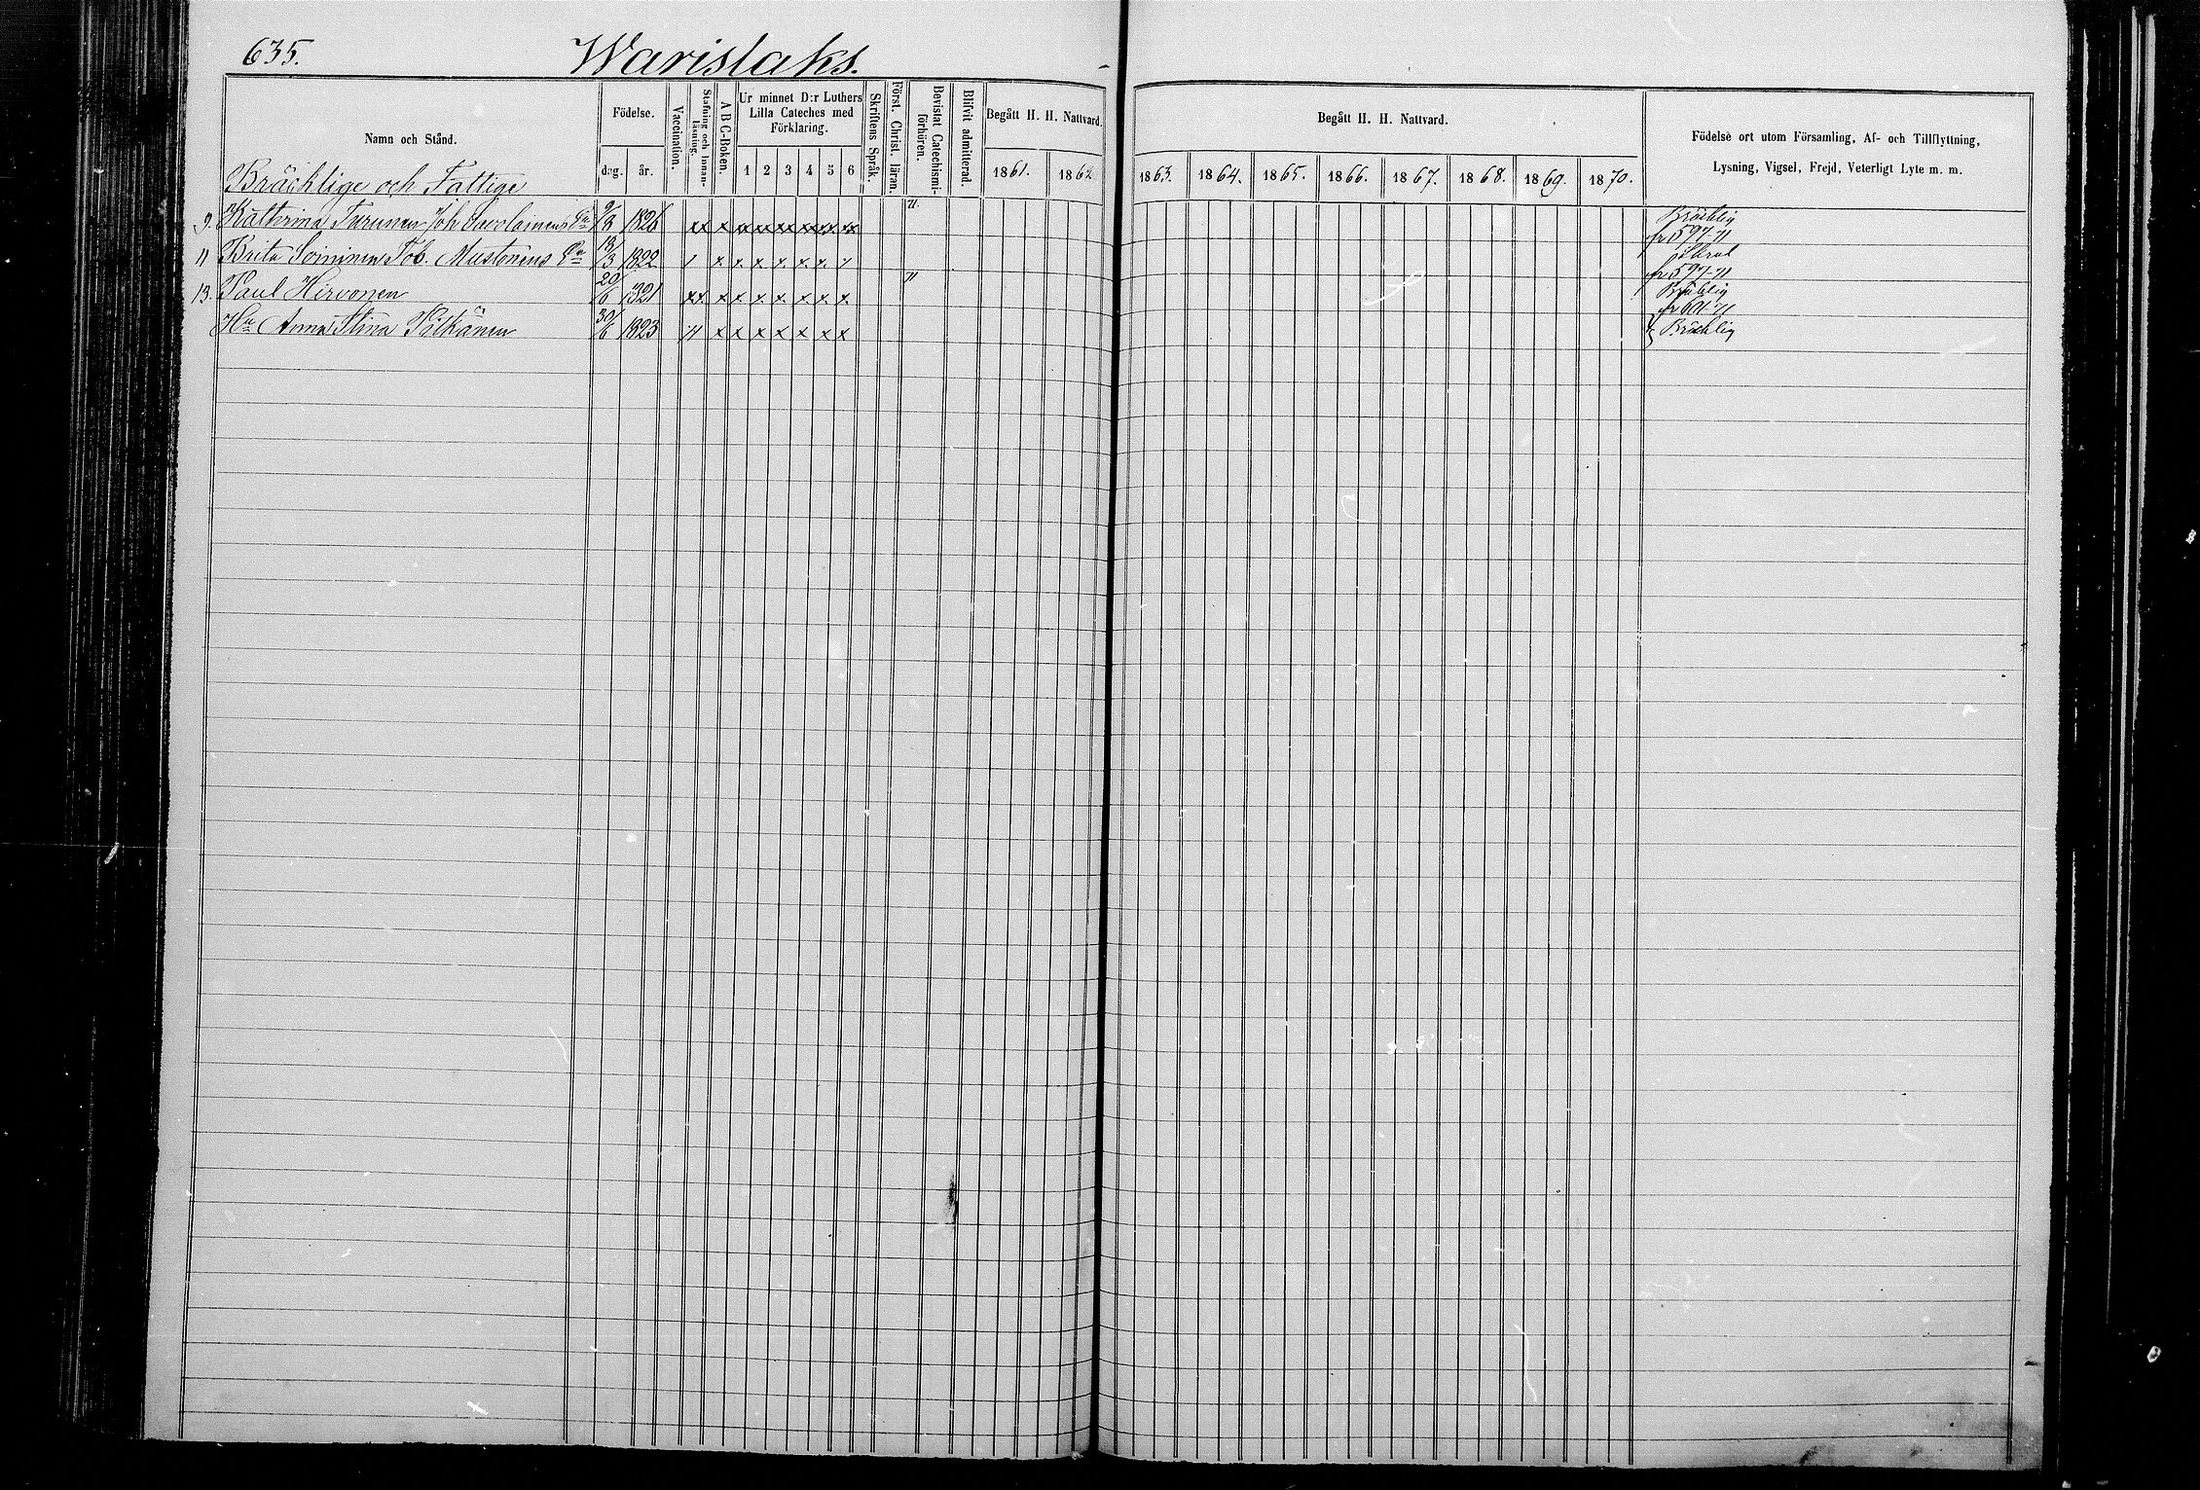 635. Warislaks.
Namn och Stånd. Födelse. dag. år. Vaccination. Stafning och Innanläsning. A B C-Boken. Ur minnet D:r Luthers Lilla Cateches med Förklaring. 1 2 3 4 5 6 Skriftens Språk. Först. Christ. läran. Bevistat Catechismiförhören. Blifvit admitterad. Begått H. H. Nattvard. 1861. 1862.
Begått H. H. Nattvard. 1863. 1864. 1865. 1866. 1867. 1868. 1869. 1870. Födelse ort utom Församling, Af- och Tillflyttning, Lysning, Vigsel, Frejd, Veterligt Lyte m. m.
Bräcklige och Fattige
9. Kathrina Turunen Joh 9/8 1826 xx x xx xx xx xx xx xx 71 Bräcklig
fr 597-71
11 Brita Soininen Tob. Mustonens Ea 13/3 1822 / x x x x x x x
fr 597-71
13. Paul Hirvonen 20/6 1821 xx x x x x x x x 71 Bräcklig
fr 601-71
Hu Anna Stina Pitkänen 30/6 1823 // x x x x x x x Bräcklig